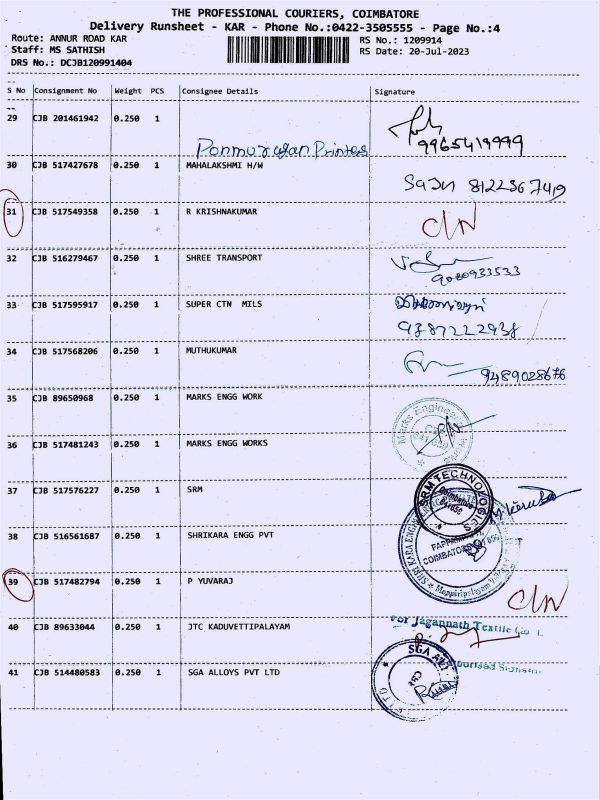 THE PROFESSIONAL COURIERS, COIMBATORE
Delivery Runsheet - KAR - Phone No.:0422-3505555 - Page No.:4
Route: ANNUR ROAD KAR
RS No.: 1209914
Staff: MS SATHISH
RS Date: 20-Jul-2023
DRS No.: DCJB120991404
S No Consignment No Weight PCS Consignee Details Signature
29 CJB 201461942 0.250 1
9965419999
Ponmurugan Printers
30 CJB 517427678 0.250 1 MAHALAKSHMI H/W
31 CJB 517549358 0.250 1 R KRISHNAKUMAR
32 CJB 516279467 0.250 1 SHREE TRANSPORT
9080933533
33 CJB 517595917 0.250 1 SUPER CTN MILS
9787222938
34 CJB 517568206 0.250 1 MUTHUKUMAR
9489028676
35 CJB 89650968 0.250 1 MARKS ENGG WORK
Marks Engineer
36 CJB 517481243 0.250 1 MARKS ENGG WORKS
37 CJB 517576227 0.250 1 SRM
SRM TECHNOLOGIES
Coimbatore
641659
38 CJB 516561687 0.250 1 SHRIKARA ENGG PVT
39 CJB 517482794 0.250 1 P YUVARAJ
40 CJB 89633044 0.250 1 JTC KADUVETTIPALAYAM
For Jagannath Textile
41 CJB 514480583 0.250 1 SGA ALLOYS PVT LTD
SGA